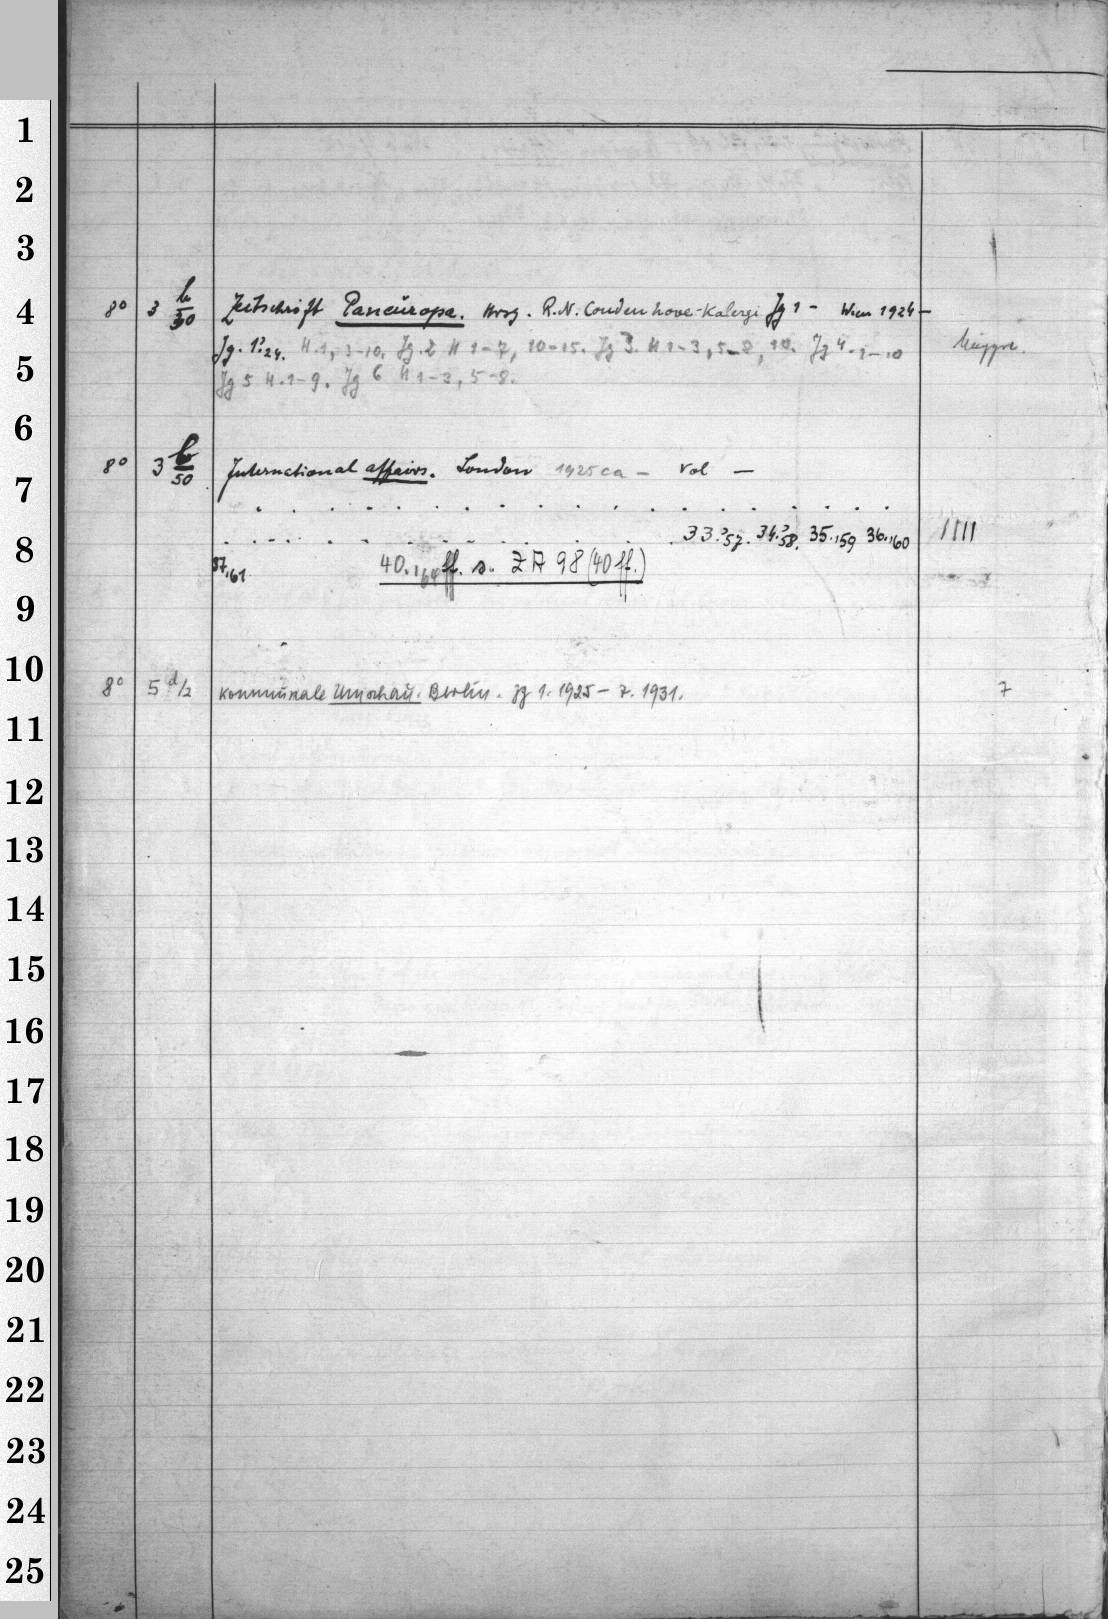 1
2
3
8° 3 b/50 Zeitschrift Paneuropa. Hrsg. R.N. Coudenhove-Kalergi Jg 1 - Wien 1924 -
4
Jg. 1?.24. H.1, 3-10. Jg. 2 H 1-7, 10-15. Jg 3. H 1-3, 5-8, 10. Jg 4. 1-10
5
Jg 5 H.1-9. Jg 6 H 1-3, 5-8.
6
8° 3 b/50 International affairs. London 1925 ca - Vol —
7
33.?57. 34.?58. 35.159 36.160 ////
8
37.161 40.164 ff. s. ZA 98 (40 ff.)
9
10
8° 5 d/2 Kommunale Umschau. Berlin. Jg 1. 1925 - 7. 1931. 7
11
12
13
14
15
16
17
18
19
20
21
22
23
24
25